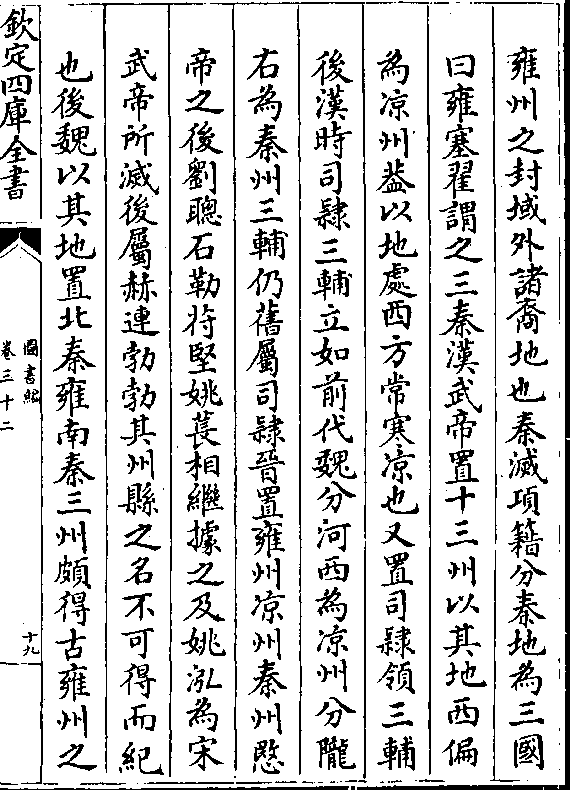 雍州之封域外諸裔地也秦滅項籍分秦地為三國
曰雍塞翟謂之三秦漢武帝置十三州以其地西偏
為凉州葢以地處西方常寒凉也又置司隸領三輔
後漢時司隸三輔立如前代魏分河西為凉州分隴
右為秦州三輔仍舊屬司隸晉置雍州凉州秦州愍
帝之後劉聰石勒苻堅姚萇相繼據之及姚泓為宋
武帝所滅後屬赫連勃勃其州縣之名不可得而紀
也後魏以其地置北秦雍南秦三州頗得古雍州之
欽定四庫全書
圖書編
卷三十二
十九